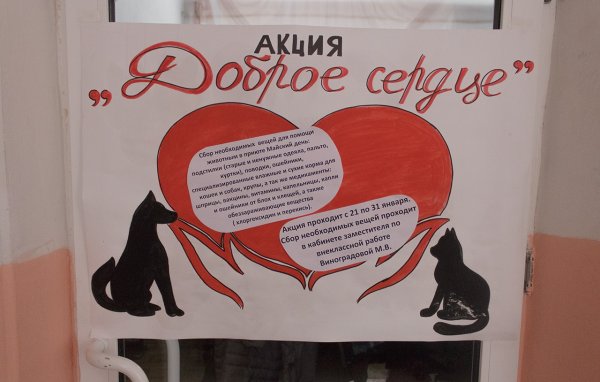 АКЦИЯ
„Доброе сердце”
Сбор необходимых вещей для помощи
животным в приюте Майский день.
подстилки (старые и ненужные одеяла, пальто,
куртки), поводки, ошейники,
специализированные влажные и сухие корма для
кошек и собак, крупы, а так же медикаменты:
шприцы, вакцины, витамины, капельницы, капли
и ошейники от блох и клещей, а также
обеззараживающие вещества
( хлоргексидин и перекись).
Акция проходит с 21 по 31 января.
Сбор необходимых вещей проходит
в кабинете заместителя по
внеклассной работе
Виноградовой М.В.